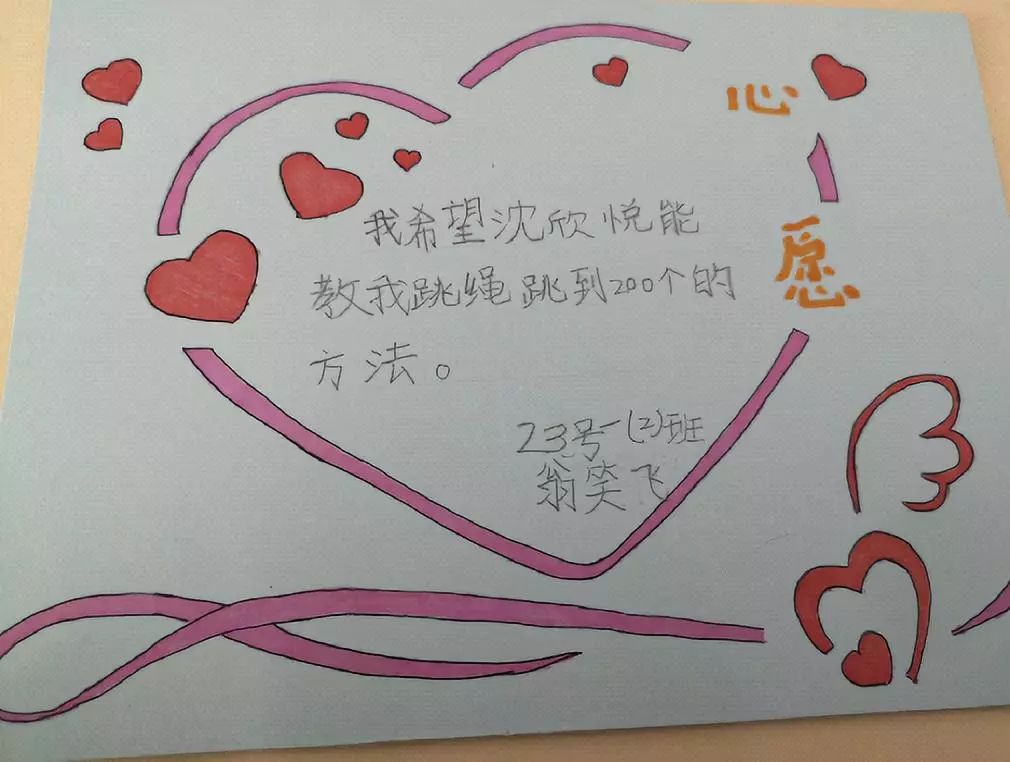 心
愿
我希望沈欣悦能
教我跳绳跳到200个的
方法。
23号一(2)班
翁笑飞